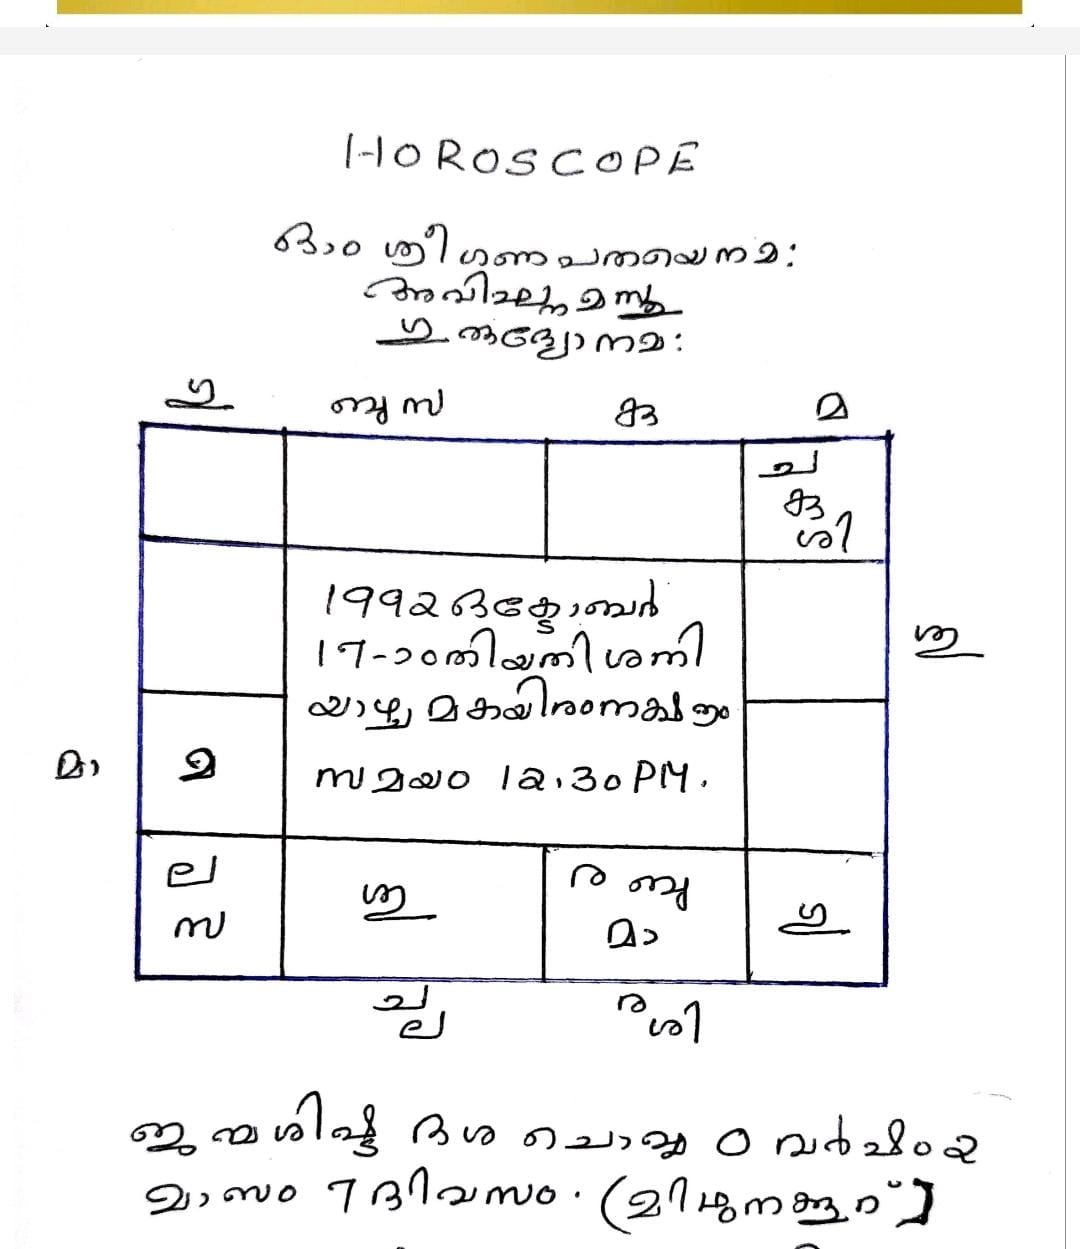 HOROSCOPE
ഓം ശ്രീ ഗണപതയെ നമ:
അവിഘ്നമസ്തു
ഗുരുഭ്യോ നമ:
ഗു ബു സ കു മ
ച
കു
ശി
1992 ഒക്ടോബർ
17-ാം തിയതി ശനി
യാഴ്ച മകയിരം നക്ഷത്രം
സമയം 12.30 PM.
ശു
മാ മ
ല
സ
ശു
ര ബു
മാ
ഗു
ച
ല
ര ശി
ജന്മശിഷ്ട ദശ ചൊവ്വ 0 വർഷം 2
മാസം 7 ദിവസം. (മിഥുനക്കൂറ്)